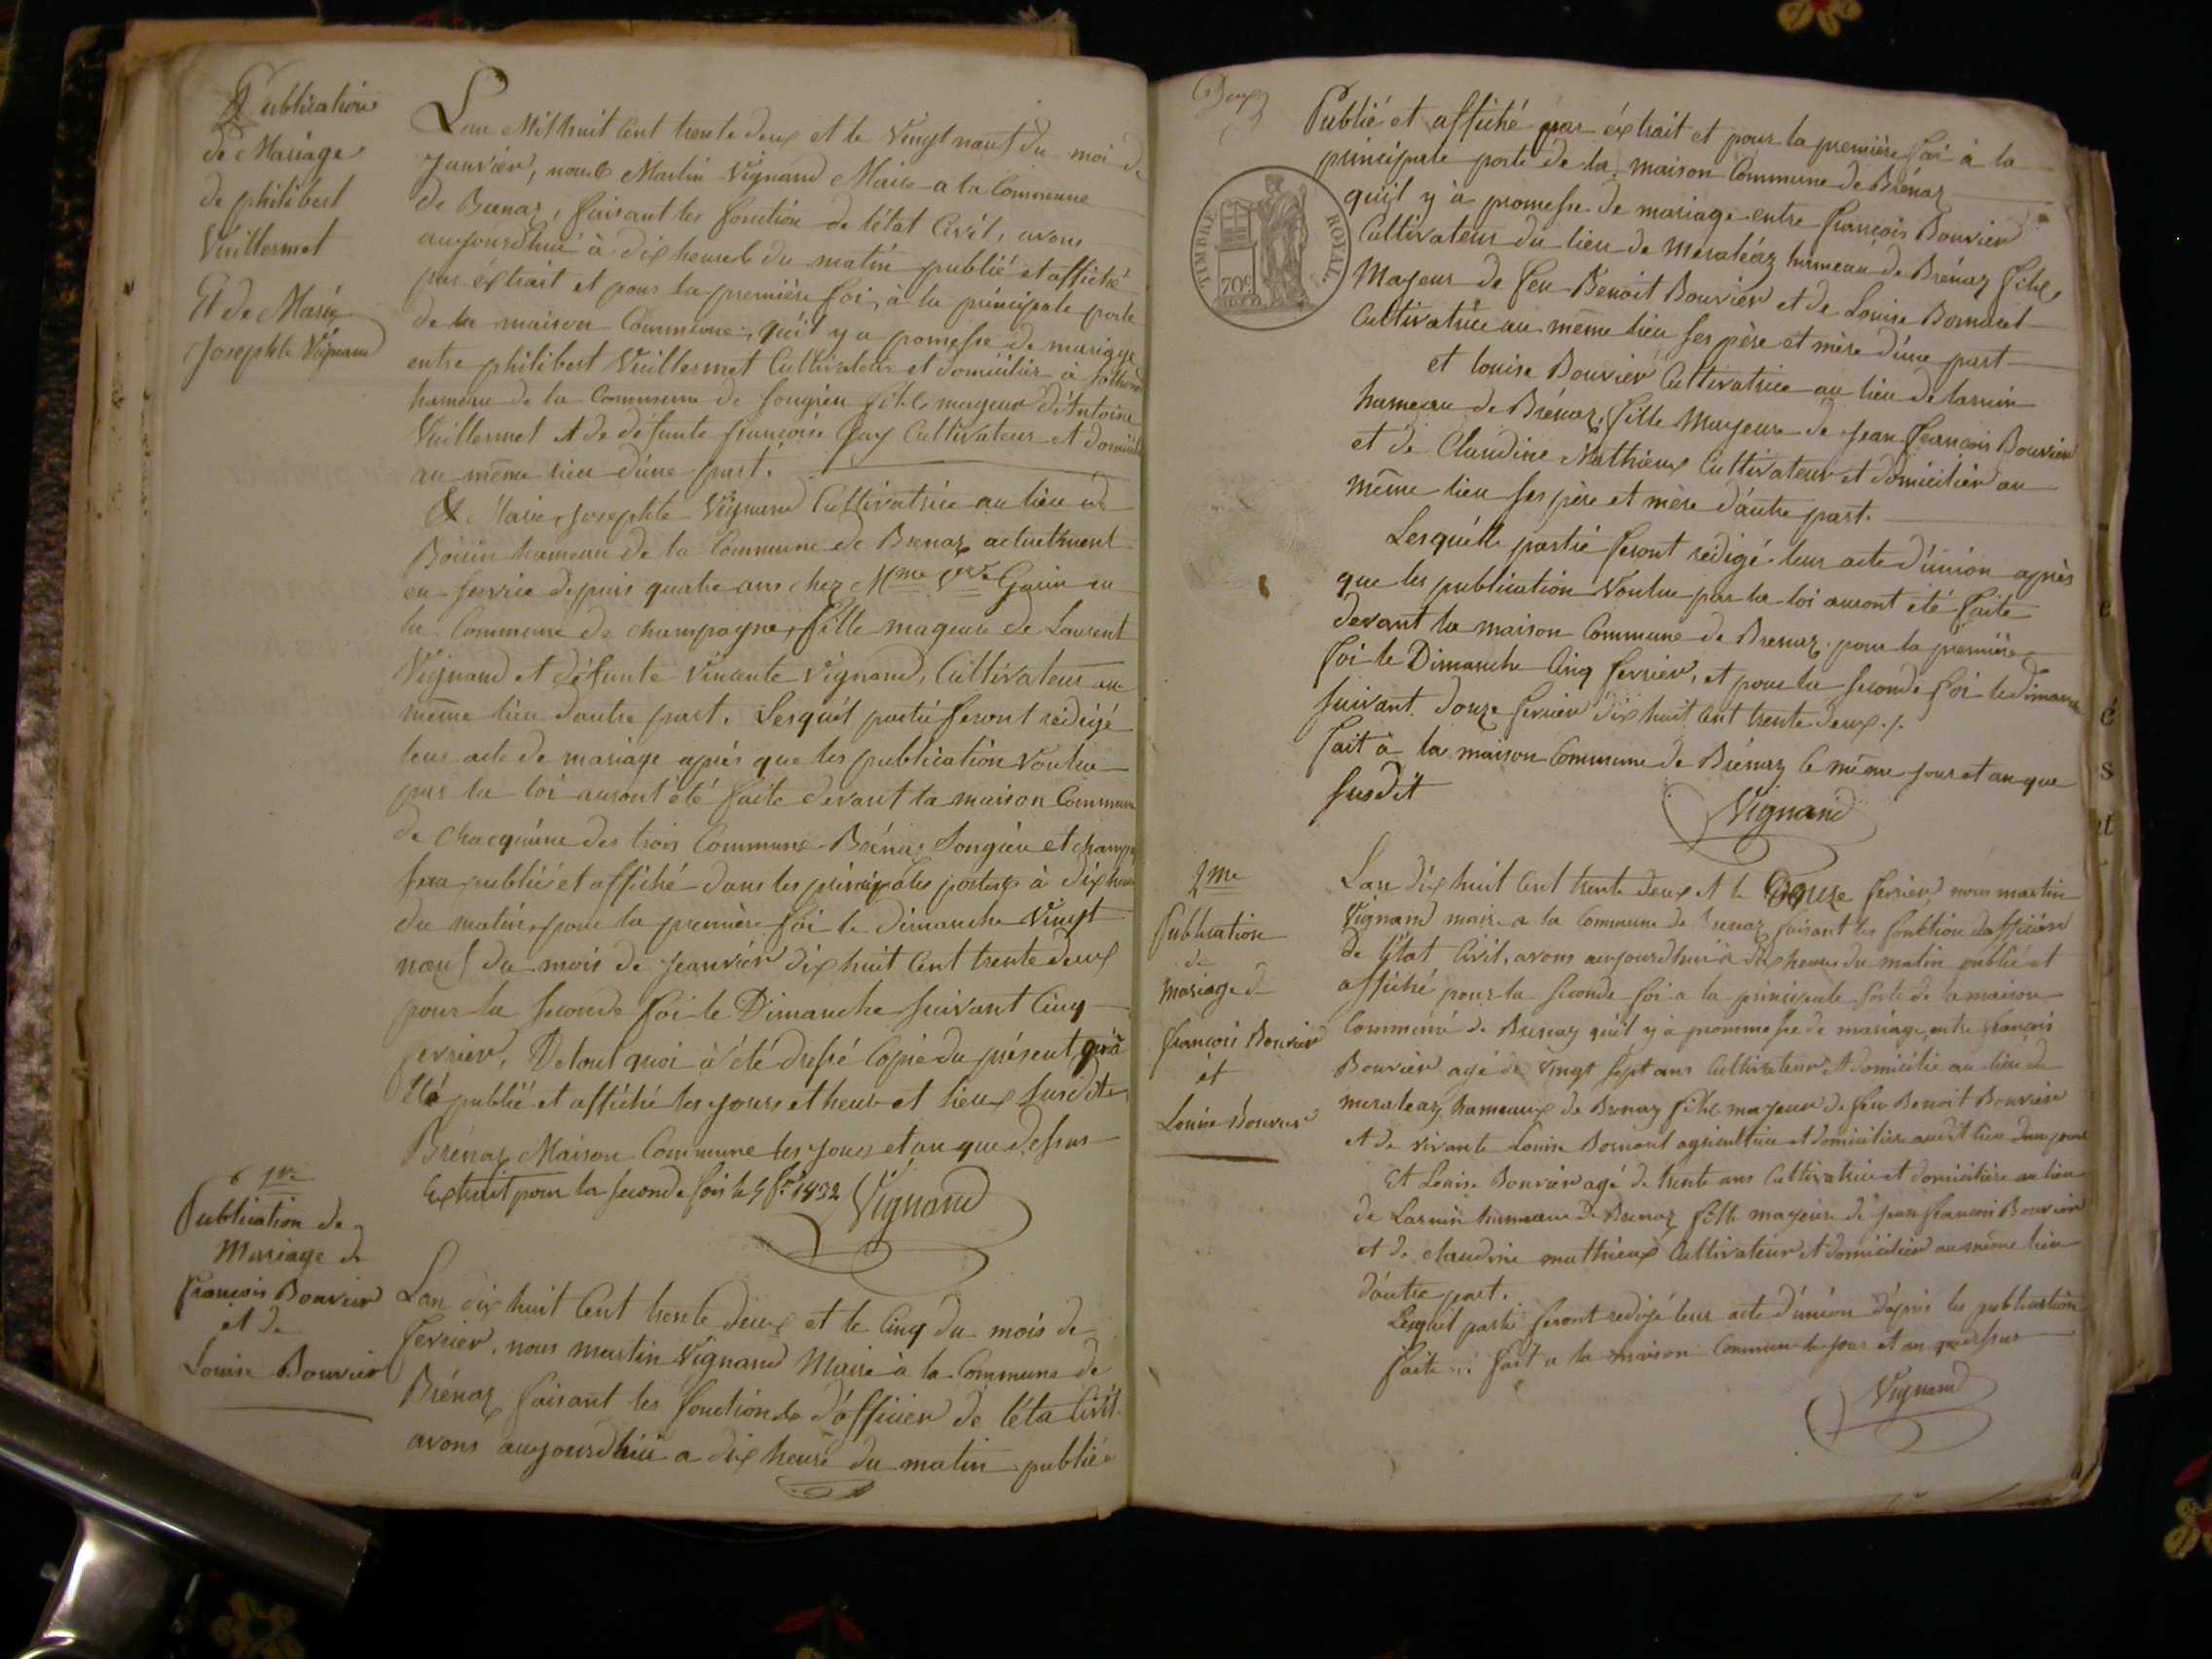 Publication
de Mariage
de philibert
Vuillermet
Et de Marie
Josephte Vignand
L'an Mil huit Cent trente deux et le Vingt nauf du moi de
Janvier, nous Martin Vignand Maire a la Commune
de Brenaz, faisant les fonction de l'état Civil, avons
aujourdhui à dix heures du matin publié et affiché
par éxtrait et pour la première foi, à la principale porte
de la maison Commune, qu'il y a promesse de mariage
entre philibert Vuillermet Cultivateur et domicilié à
hameau de la Commune de Songieu fils mageur d'Antoine
Vuillermet et de défunte françoise Guy Cultivateur et domicilié
au même lieu d'une part.
& Marie Josephte Vignand Cultivatrice au lieu de
hameau de la Commune de Brenaz actuelment
en service depuis quatre ans chez Mme Vve Garin en
la Commune de champagne, fille mageure de Laurent
Vignand et défunte Vincente Vignand, Cultivateur au
même lieu d'autre part. Lesquel partié feront rédigé
leur acte de mariage après que les publication Voulue
par la loi auront été faite devant la maison Commune
de chacquune des trois Commune Brénaz Songieu et champ
sera publié et affiché dans les principales portes à dix heure
du matin, pour la première foi le dimanche Vingt
nœuf du mois de Jeanvier dix huit Cent trente deux
pour la seconde foi le Dimanche suivant Cinq
fevrier, De tout quoi à été dressé Copie du présent qu'à
été publié et affiché les jours et heure et lieux susdits
Brénaz Maison Commune les jours et an que dessus
Extrait pour la seconde fois le 5 fr 1832 Vignand
1re
Publication de
Mariage de
françois Bouvier
et de
Louise Bouvier
Lan dix huit Cent trente deux et le Cinq du mois de
fevrier, nous martin Vignand Maire à la Commune de
Brénaz faisant les fonction d'officier de l'éta Civil
avons aujourdhui a dix heure du matin publié
Deux
TIMBRE ROYAL
70c
Publié et affiché par éxtrait et pour la première foi à la
principale porte de la maison Commune de Brénaz
qu'il y à promesse de mariage entre françois Bouvier
Cultivateur du lieu de Meraléaz hameau de Brénaz fils
Mageur de feu Benoit Bouvier et de Louise Bornaret
Cultivatrice au même lieu ses père et mère d'une part
et louise Bouvier Cultivatrice au lieu de
hameau de Brénaz, fille Mageure de Jean françois Bouvier
et de Claudine Mathieux Cultivateur et domicilier au
même lieu ses père et mère d'autre part.
Lesquelle partié feront rédigé leur acte d'union après
que les publication Voulue par la loi auront été faite
devant la maison Commune de Brenaz pour la première
foi le Dimanche Cinq fevrier, et pour la seconde foi le dimanche
suivant douze fevrier dix huit Cent trente deux ./.
fait à la maison Commune de Brénaz le même jour et an que
susdit
Vignand
2me
Publication
de
mariage de
françois Bouvier
et
Louise Bouvier
Lan dix huit Cent trente deux et le Douze fevrier, nous martin
Vignand maire a la Commune de Brenaz faisant les fonction dofficier
de l'état Civil, avons aujourdhui à dix heure du matin publié et
affiché pour la seconde foi a la principale porte de la maison
Commune de Brenaz qu'il y à prommesse de mariage entre françois
Bouvier agé de Vingt sept ans Cultivateur et domicilié au lieu de
meraleaz hameaux de Brenaz fils mageur de feu Benoit Bouvier
et de vivante Louise Bornaret agricultrice et domicilière audit lieu dune part
Et Louise Bouvier agé de trente ans Cultivatrice et domicilière au lieu
de hameau de Brenaz fille mageure de jean francois Bouvier
et de claudine mathieux Cultivateur et domicilier au même lieu
d'autre part.
Lesquel partié feront redigé leur acte d'union d'après les publication
faite fait a la maison Commune le jour et an que dessus
Vignand